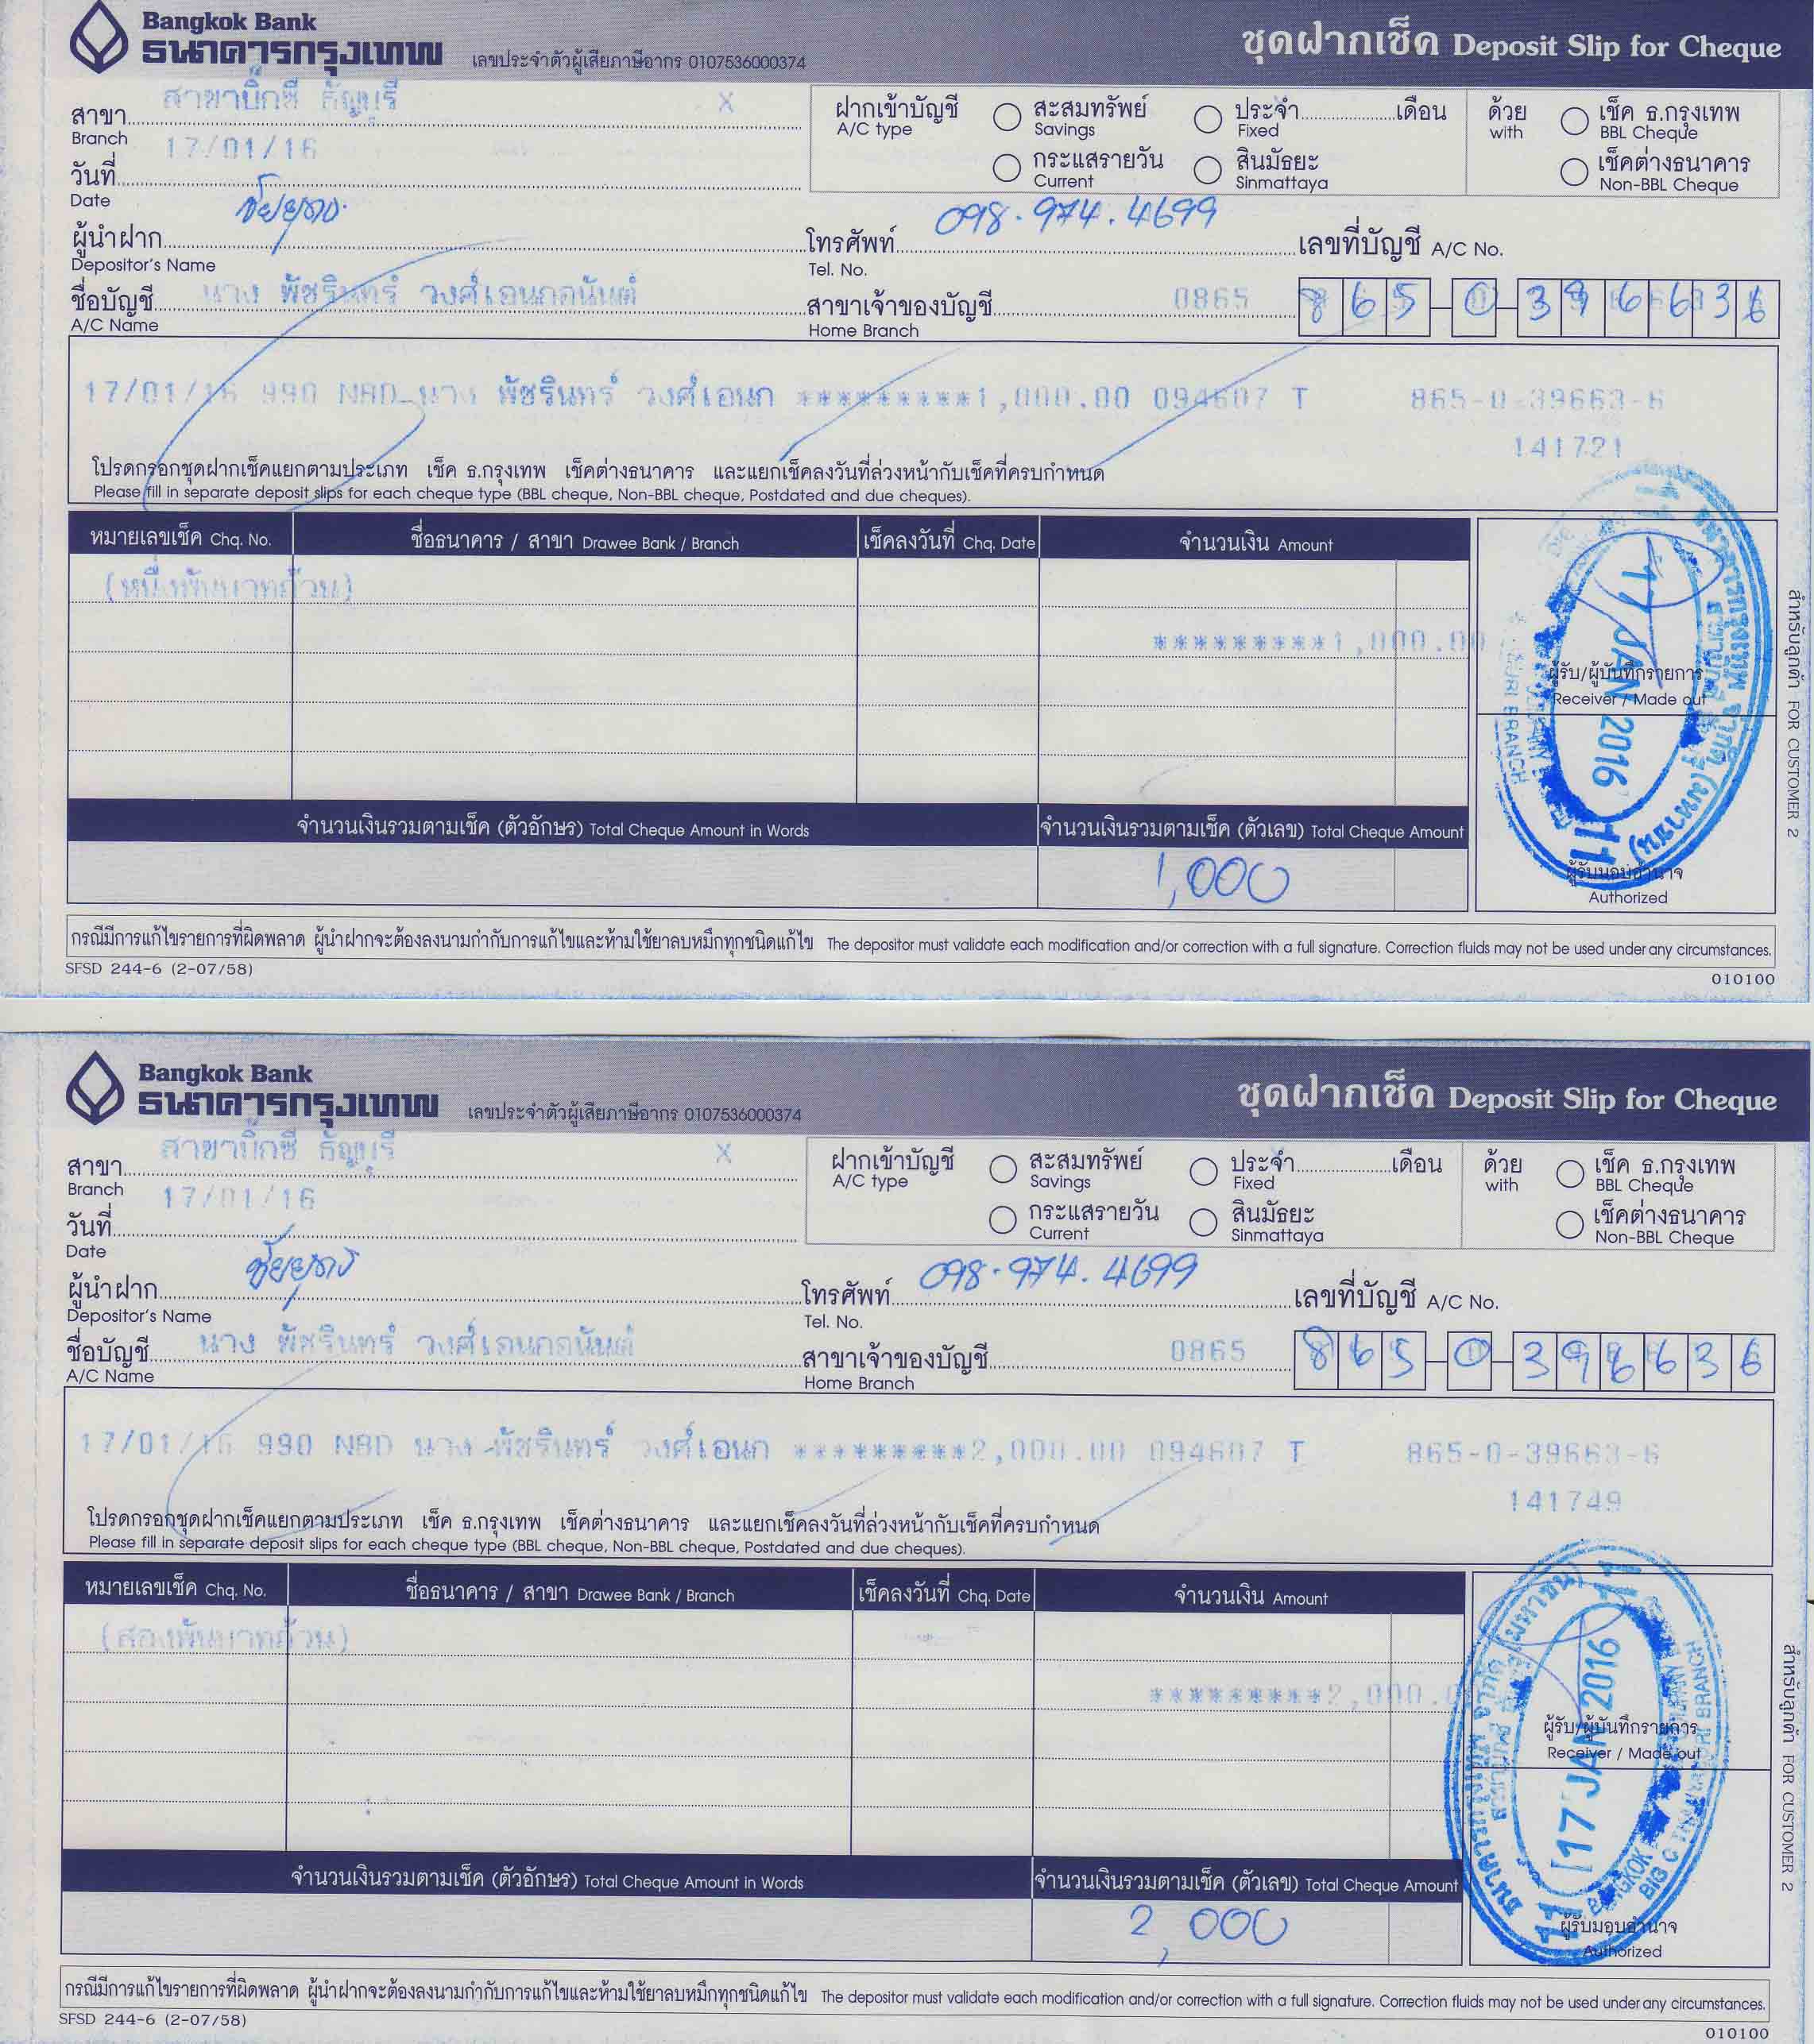 Bangkok Bank
ธนาคารกรุงเทพ เลขประจำตัวผู้เสียภาษีอากร 0107536000374
ชุดฝากเช็ค Deposit Slip for Cheque
สาขา สาขาบิ๊กซี ธัญบุรี X
Branch
วันที่ 17/01/16
Date
ฝากเข้าบัญชี สะสมทรัพย์ ประจำ เดือน ด้วย เช็ค ธ.กรุงเทพ
A/C type Savings Fixed with BBL Cheque
กระแสรายวัน สินมัธยะ เช็คต่างธนาคาร
Current Sinmattaya Non-BBL Cheque
ผู้นำฝาก โทรศัพท์ 098-974.4699 เลขที่บัญชี A/C No.
Depositor's Name Tel. No.
ชื่อบัญชี นาง พัชรินทร์ วงศ์เอนกอนันต์ สาขาเจ้าของบัญชี 0865 865-0-396636
A/C Name Home Branch
17/01/16 990 NBD นาง พัชรินทร์ วงศ์เอนก *********1,000.00 094607 T 865-0-39663-6
141721
โปรดกรอกชุดฝากเช็คแยกตามประเภท เช็ค ธ.กรุงเทพ เช็คต่างธนาคาร และแยกเช็คลงวันที่ล่วงหน้ากับเช็คที่ครบกำหนด
Please fill in separate deposit slips for each cheque type (BBL cheque, Non-BBL cheque, Postdated and due cheques).
หมายเลขเช็ค Chq. No. ชื่อธนาคาร / สาขา Drawee Bank / Branch เช็คลงวันที่ Chq. Date จำนวนเงิน Amount
(หนึ่งพันบาทถ้วน)
*********1,000.00
17 JAN 2016
ผู้รับ/ผู้บันทึกรายการ
Receiver / Made out
สำหรับลูกค้า FOR CUSTOMER 2
จำนวนเงินรวมตามเช็ค (ตัวอักษร) Total Cheque Amount in Words จำนวนเงินรวมตามเช็ค (ตัวเลข) Total Cheque Amount
1,000
ผู้รับมอบอำนาจ
Authorized
กรณีมีการแก้ไขรายการที่ผิดพลาด ผู้นำฝากจะต้องลงนามกำกับการแก้ไขและห้ามใช้ยาลบหมึกทุกชนิดแก้ไข The depositor must validate each modification and/or correction with a full signature. Correction fluids may not be used under any circumstances.
SFSD 244-6 (2-07/58) 010100
Bangkok Bank
ธนาคารกรุงเทพ เลขประจำตัวผู้เสียภาษีอากร 0107536000374
ชุดฝากเช็ค Deposit Slip for Cheque
สาขา สาขาบิ๊กซี ธัญบุรี X
Branch
วันที่ 17/01/16
Date
ฝากเข้าบัญชี สะสมทรัพย์ ประจำ เดือน ด้วย เช็ค ธ.กรุงเทพ
A/C type Savings Fixed with BBL Cheque
กระแสรายวัน สินมัธยะ เช็คต่างธนาคาร
Current Sinmattaya Non-BBL Cheque
ผู้นำฝาก โทรศัพท์ 098-974.4699 เลขที่บัญชี A/C No.
Depositor's Name Tel. No.
ชื่อบัญชี นาง พัชรินทร์ วงศ์เอนกอนันต์ สาขาเจ้าของบัญชี 0865 865-0-396636
A/C Name Home Branch
17/01/16 990 NBD นาง พัชรินทร์ วงศ์เอนก *********2,000.00 094607 T 865-0-39663-6
141749
โปรดกรอกชุดฝากเช็คแยกตามประเภท เช็ค ธ.กรุงเทพ เช็คต่างธนาคาร และแยกเช็คลงวันที่ล่วงหน้ากับเช็คที่ครบกำหนด
Please fill in separate deposit slips for each cheque type (BBL cheque, Non-BBL cheque, Postdated and due cheques).
หมายเลขเช็ค Chq. No. ชื่อธนาคาร / สาขา Drawee Bank / Branch เช็คลงวันที่ Chq. Date จำนวนเงิน Amount
(สองพันบาทถ้วน)
*********2,000.0
17 JAN 2016
ผู้รับ/ผู้บันทึกรายการ
Receiver / Made out
สำหรับลูกค้า FOR CUSTOMER 2
จำนวนเงินรวมตามเช็ค (ตัวอักษร) Total Cheque Amount in Words จำนวนเงินรวมตามเช็ค (ตัวเลข) Total Cheque Amount
2,000
ผู้รับมอบอำนาจ
Authorized
กรณีมีการแก้ไขรายการที่ผิดพลาด ผู้นำฝากจะต้องลงนามกำกับการแก้ไขและห้ามใช้ยาลบหมึกทุกชนิดแก้ไข The depositor must validate each modification and/or correction with a full signature. Correction fluids may not be used under any circumstances.
SFSD 244-6 (2-07/58) 010100